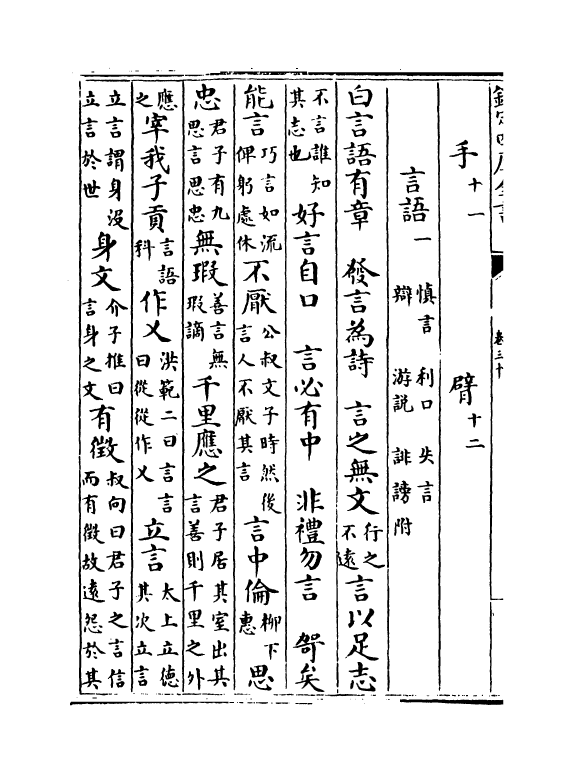 欽定四庫全書 卷三十
手十一 臂十二
言語一 慎言 利口 失言 辯 游説 誹謗附
白言語有章 發言為詩 言之無文行之不遠言以足志
不言誰知其志也 好言自口 言必有中 非禮勿言 哿矣
能言巧言如流俾躬處休不厭公叔文子時然後言人不厭其言言中倫柳下惠思
忠君子有九思言思忠無瑕善言無瑕謫千里應之君子居其室出其言善則千里之外
應之宰我子貢言語科作乂洪範二曰言言曰從從作乂立言太上立德其次立言
立言謂身沒立言於世身文介子推曰言身之文有徵叔向曰君子之言信而有徵故遠怨於其